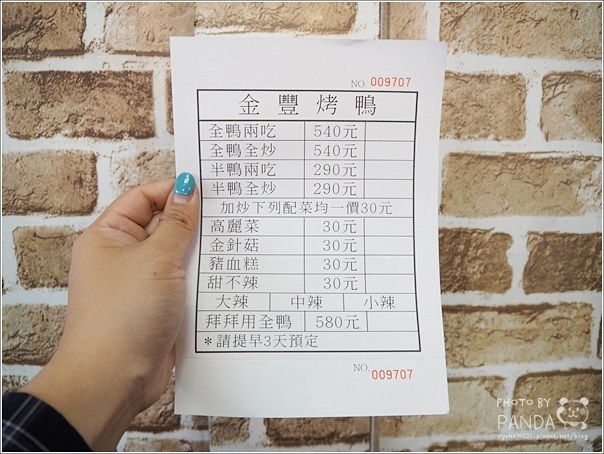 NO 009707
金豐烤鴨
全鴨兩吃 540元
全鴨全炒 540元
半鴨兩吃 290元
半鴨全炒 290元
加炒下列配菜均一價30元
高麗菜 30元
金針菇 30元
豬血糕 30元
甜不辣 30元
大辣 中辣 小辣
拜拜用全鴨 580元
*請提早3天預定
NO. 009707
PHOTO BY
PANDA